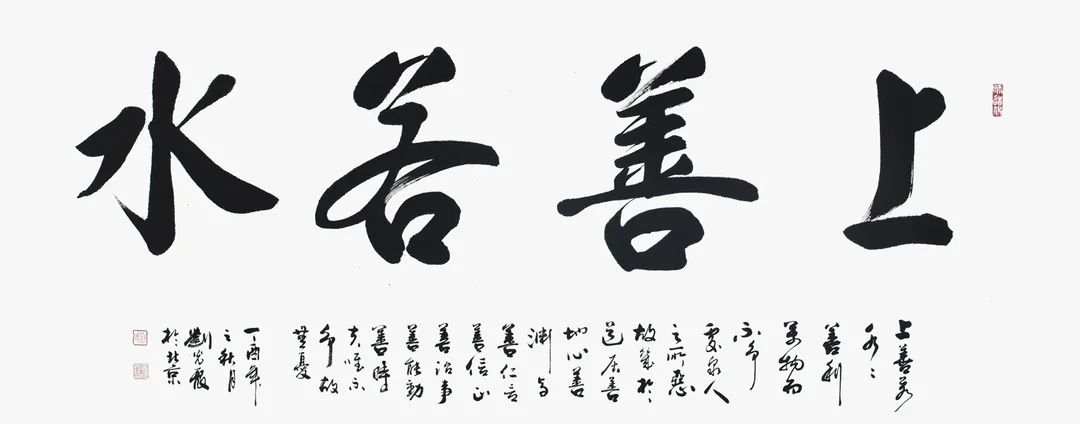 上善若水
上善若
水〻
善利
萬物而
不争
處衆人
之所惡
故幾於
道居善
地心善
淵與
善仁言
善信正
善治事
善能動
善時
夫唯不
争故
無憂
丁酉年
之秋月
劉
於北京